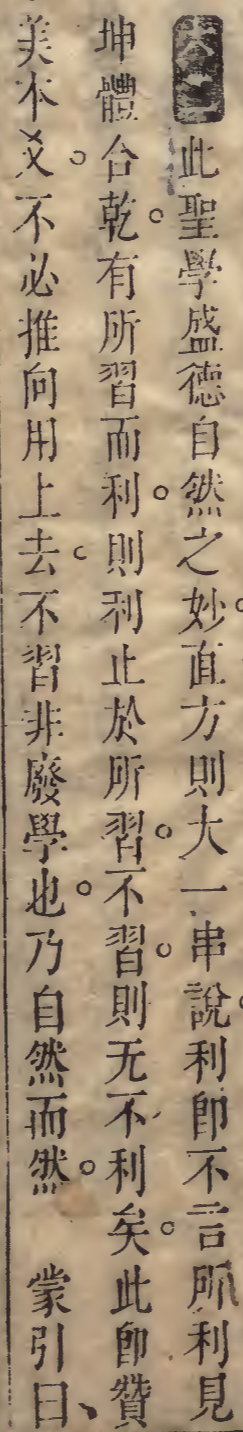 此聖學盛德自然之妙。直方則大一串說。利即不言所利見
坤體合乾。有所習而利。則利止於所習。不習。則无不利矣。此即贊
美本爻。不必推向用上去。不習非廢學也。乃自然而然。 蒙引曰、